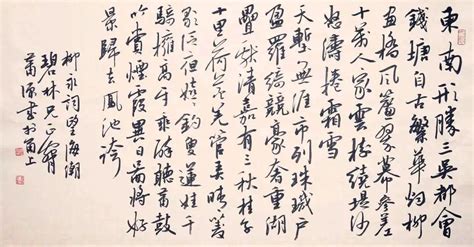 東南形勝三吳都會
錢塘自古繁華烟柳
畫橋風簾翠幕參差
十萬人家雲樹繞堤沙
怒濤捲霜雪
天塹無涯市列珠璣戶
盈羅綺競豪奢重湖
疊巘清嘉有三秋桂子
十里荷花羌管弄晴菱
歌泛夜嬉嬉釣叟蓮娃千
騎擁高牙乘醉聽簫鼓
吟賞煙霞異日圖將好
景歸去鳳池誇
柳永詞望海潮
碧林兄正
源書於甬上